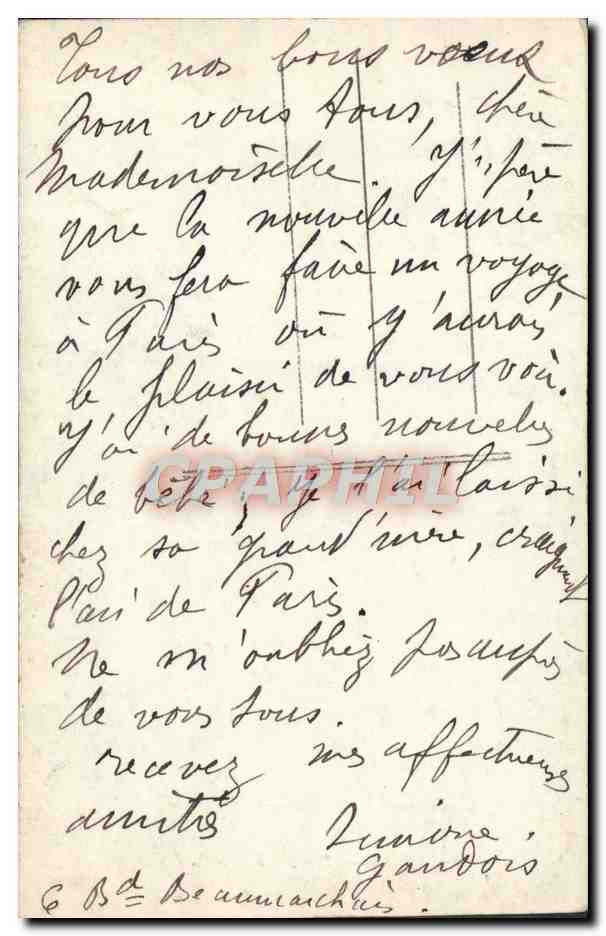 Tous nos bons voeux
pour vous tous, chère
Mademoiselle. J'espère
que la nouvelle année
vous fera faire un voyage
à Paris où j'aurais
le plaisir de vous voir.
J'ai de bonnes nouvelles
de bébé, je l'ai laissé
chez sa grand'mère, craignant
l'air de Paris.
Ne m'oubliez pas auprès
de vous tous.
recevez mes affectueuses
amitiés Simone
Gaudois
6 Bd Beaumarchais.
CPAPHIL